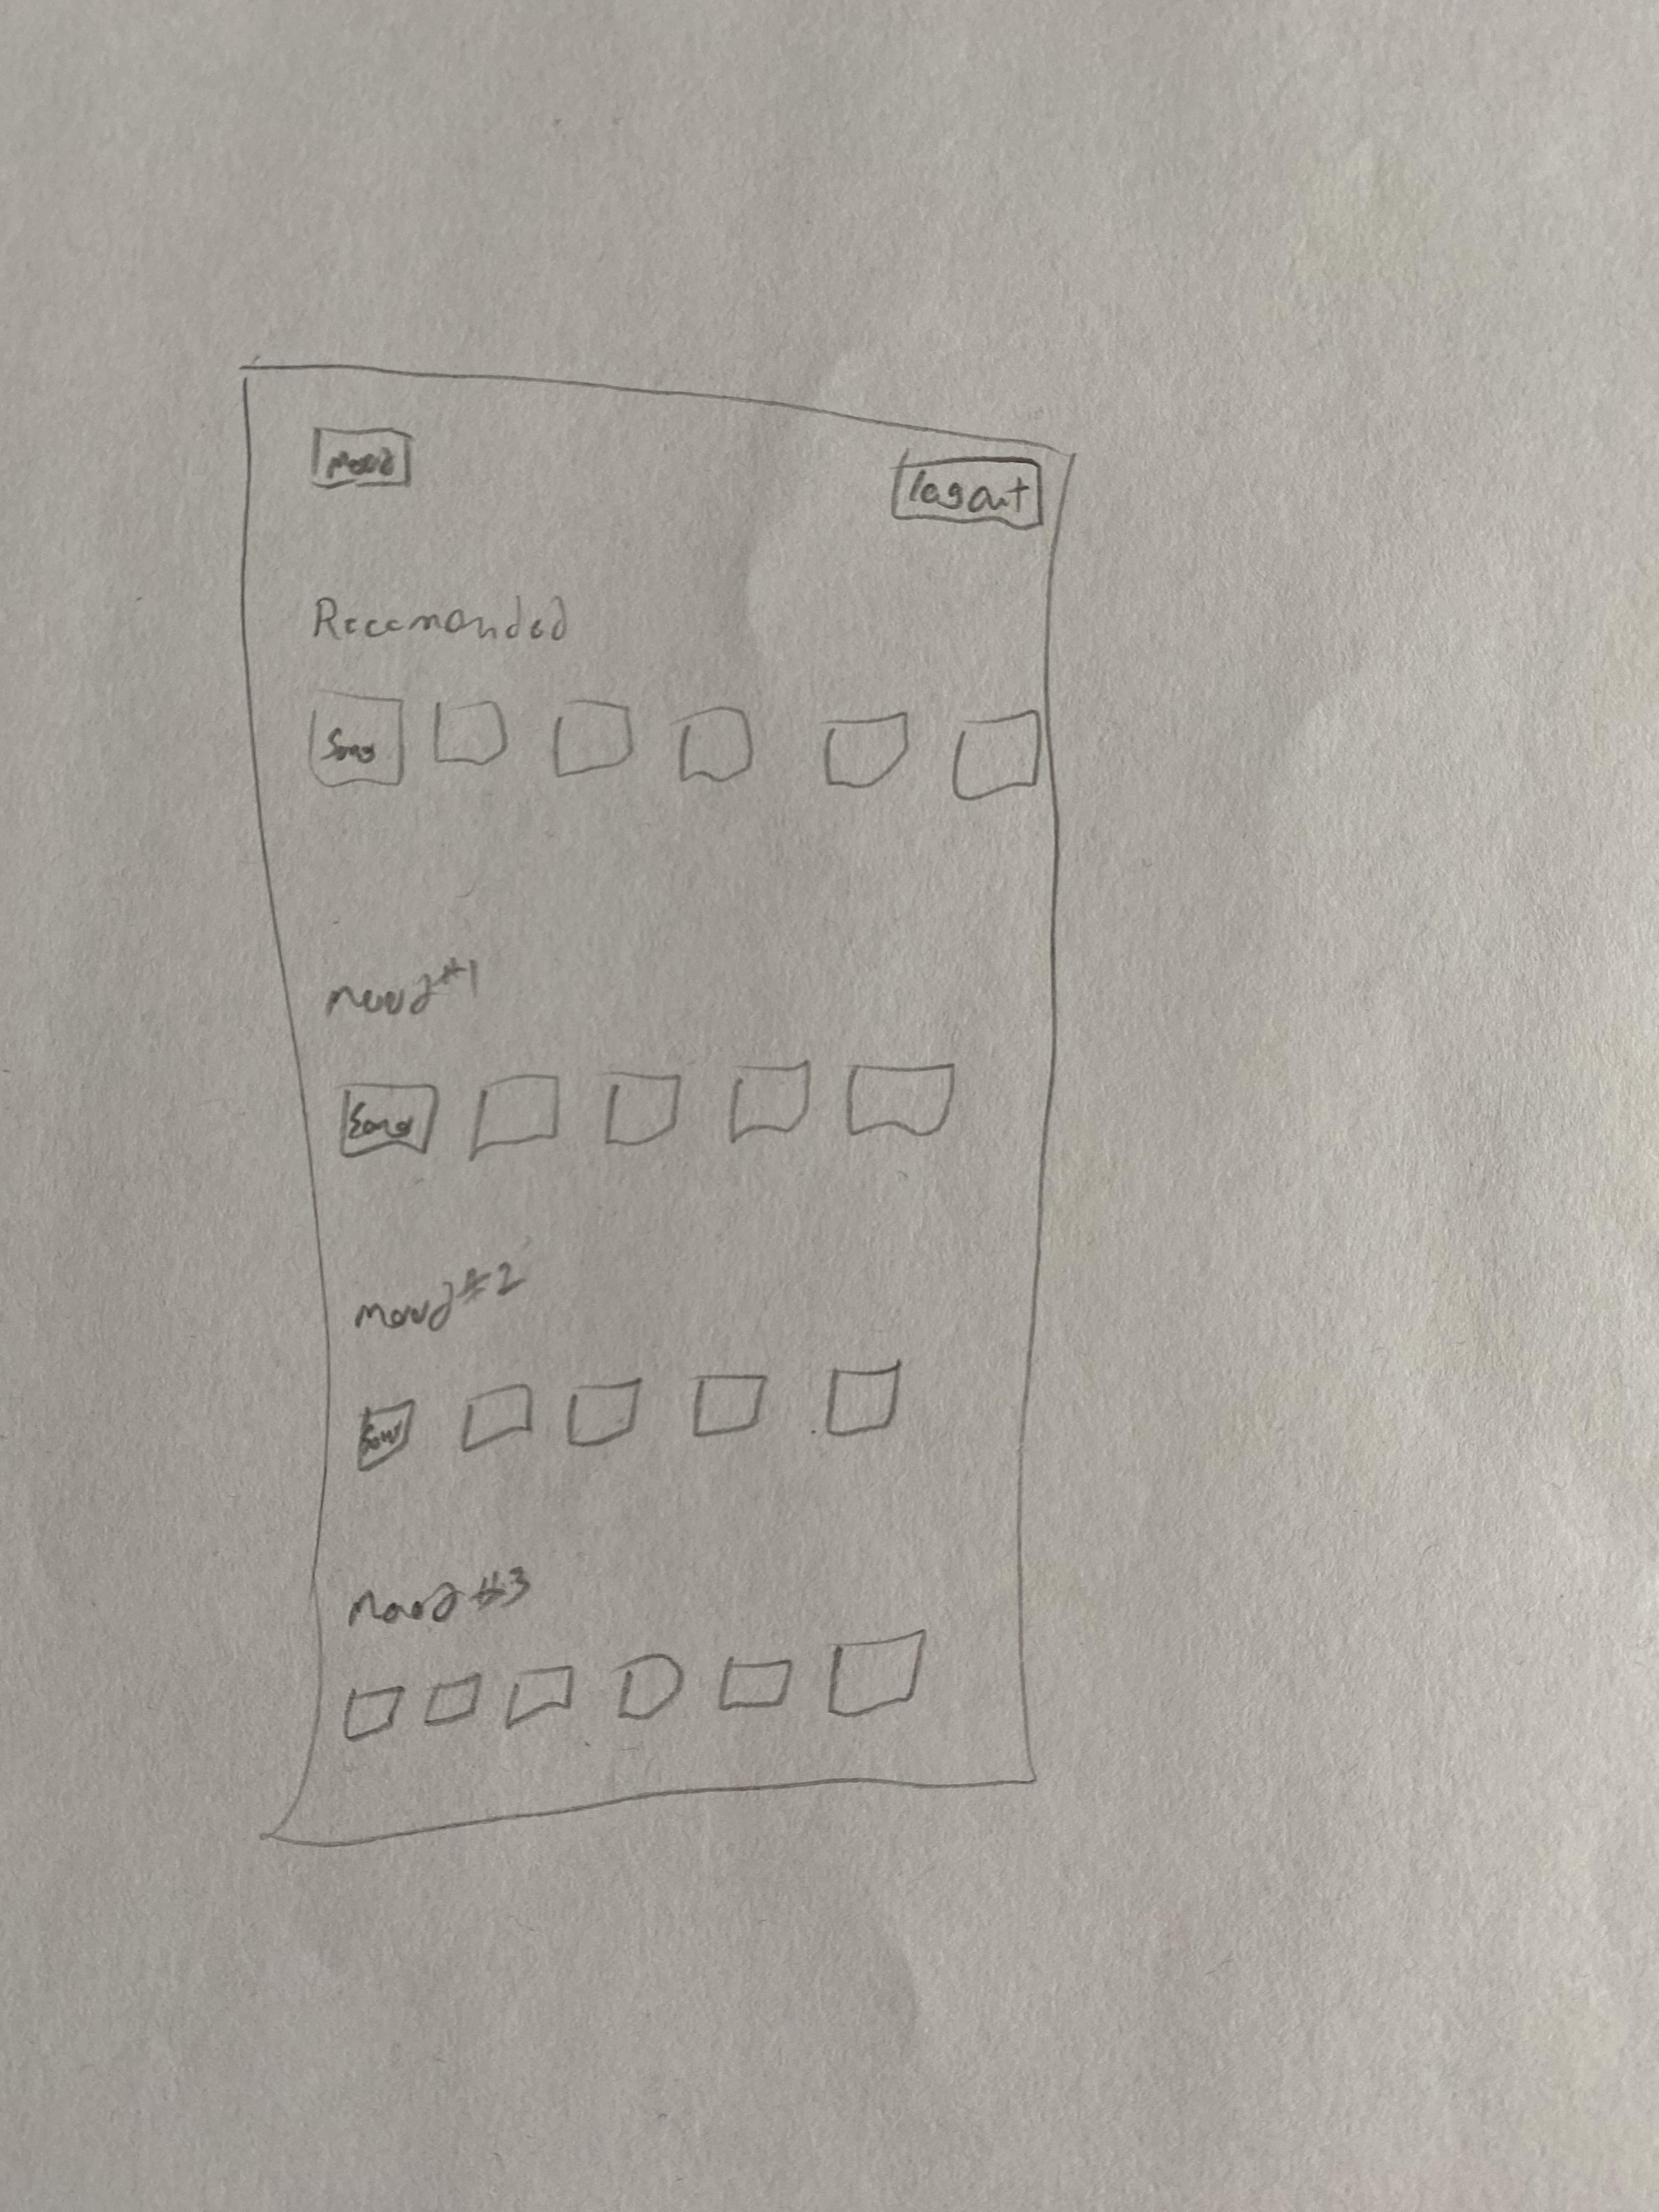 mood
logout
Recomended
Song
mood #1
Song
mood #2
Song
mood #3